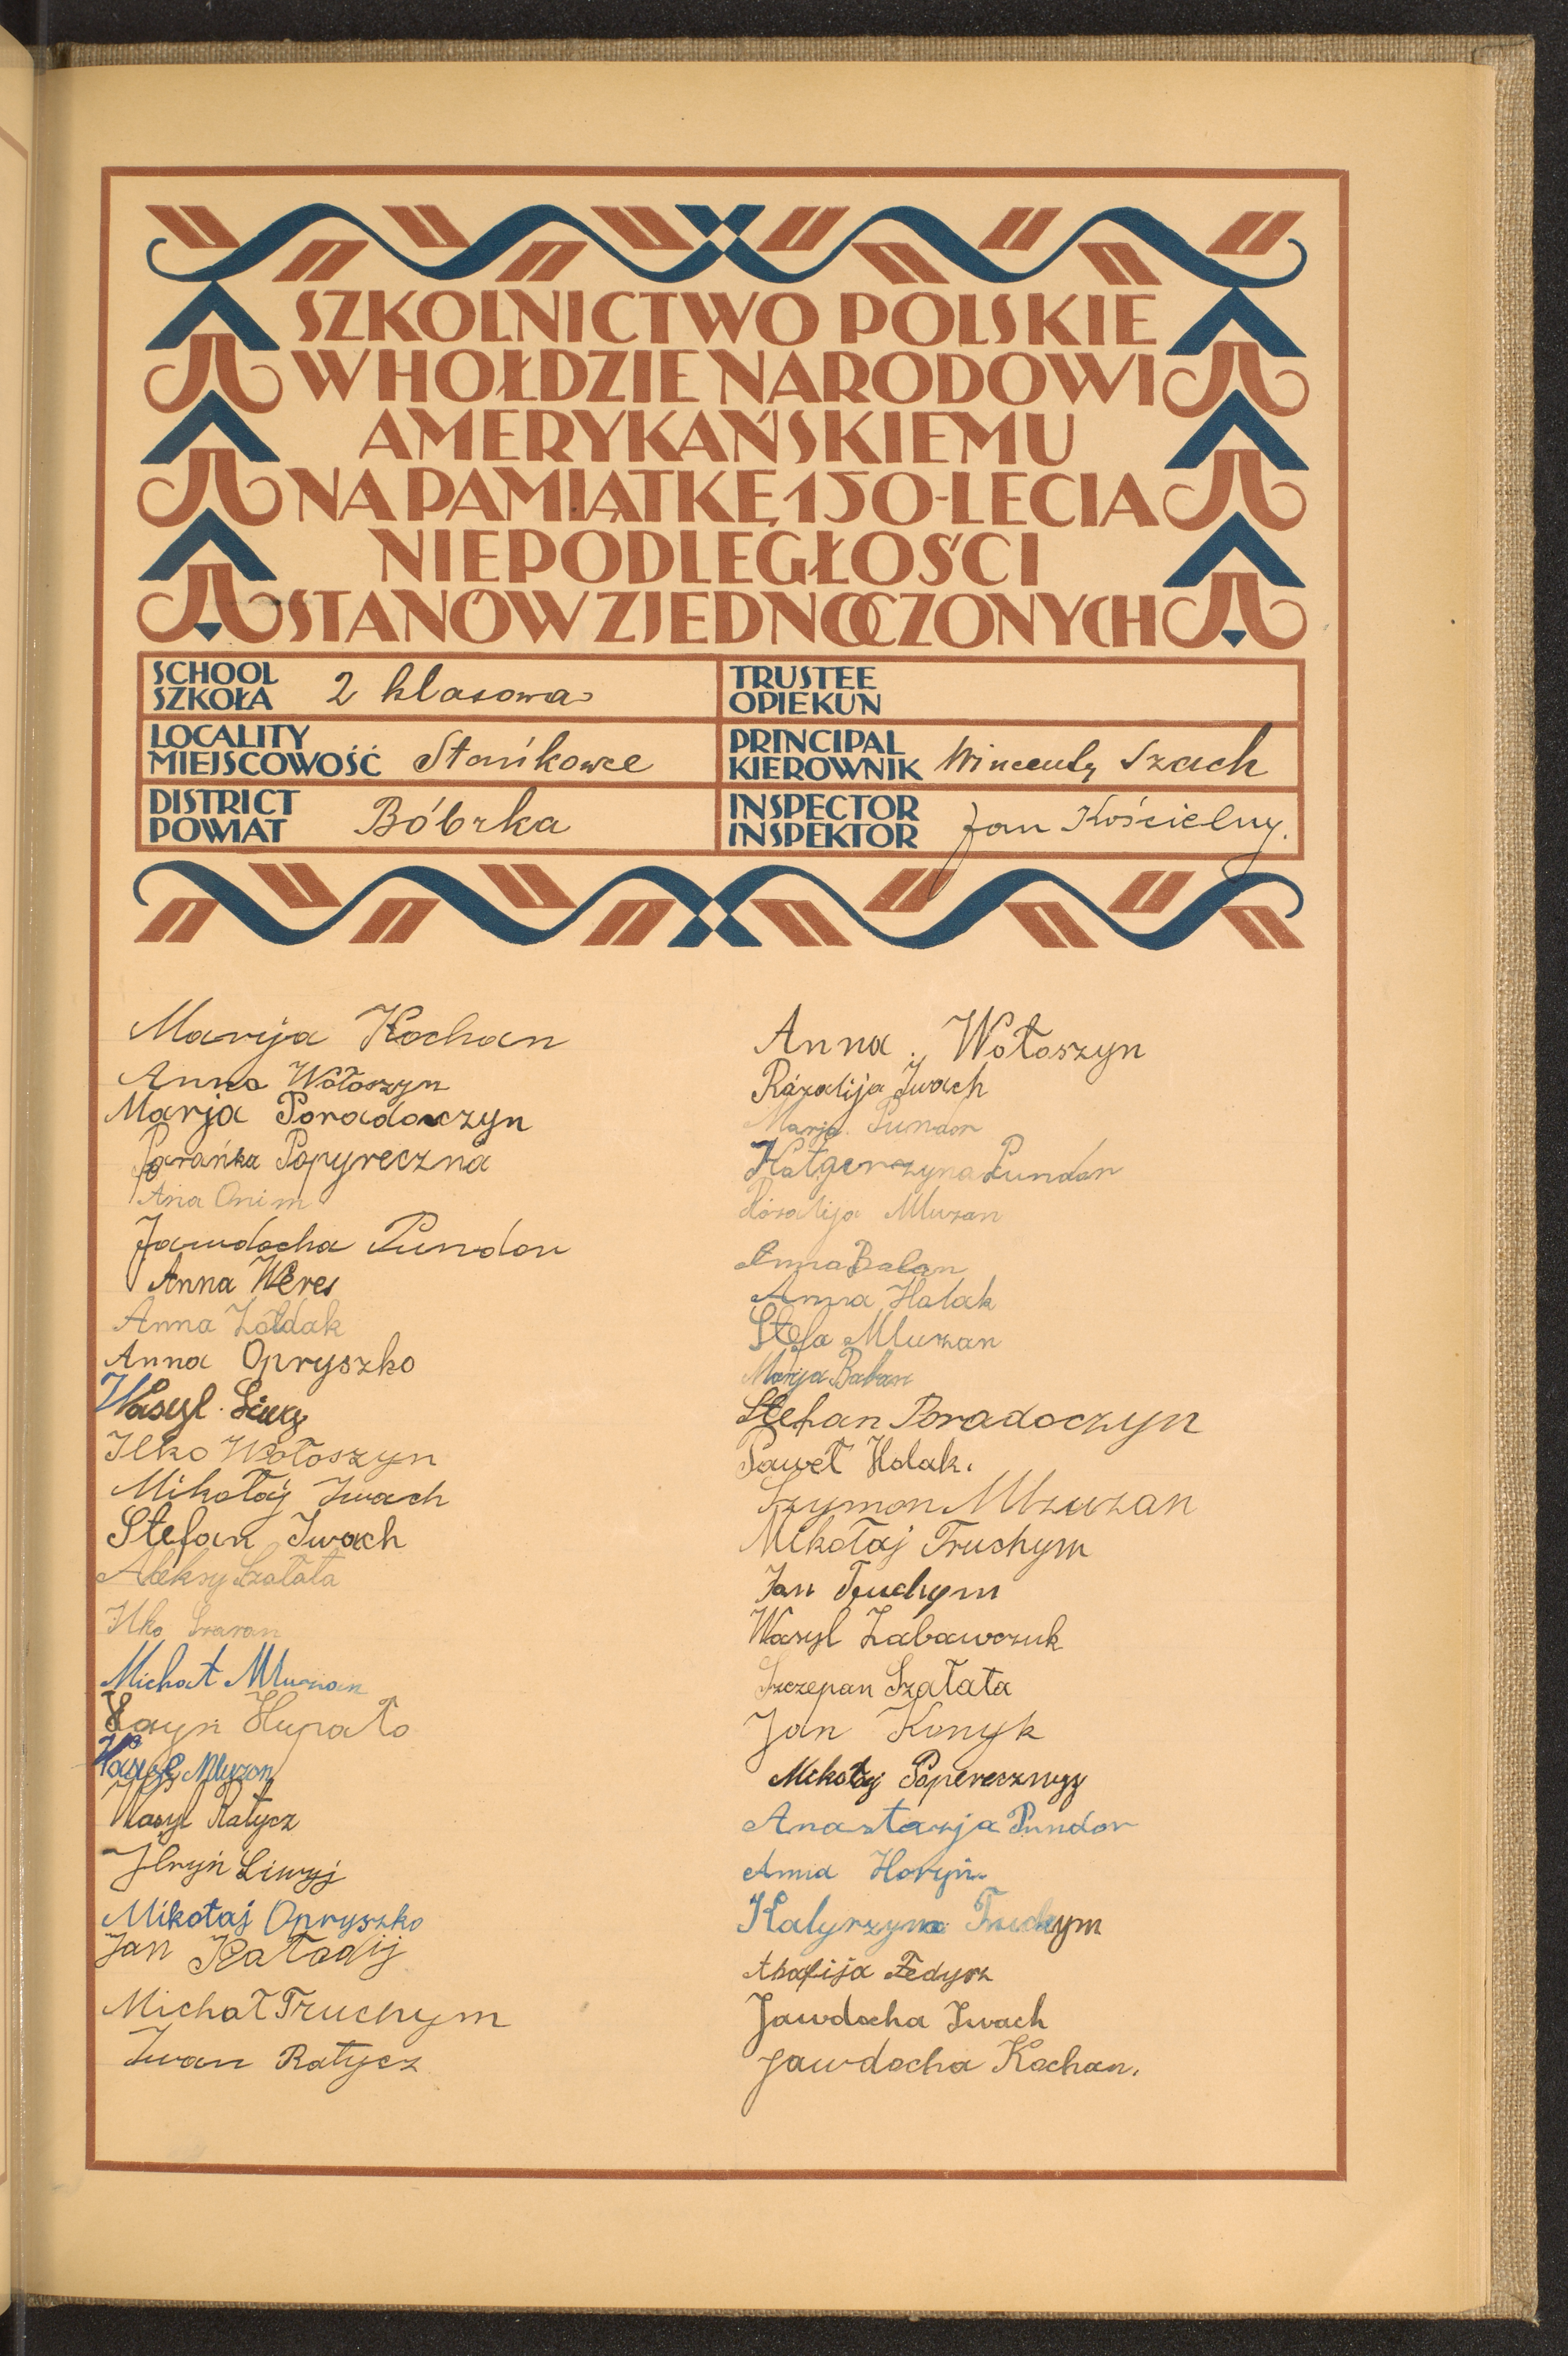 SZKOLNICTWO POLSKIE
W HOŁDZIE NARODOWI
AMERYKAŃSKIEMU
NA PAMIĄTKĘ 150-LECIA
NIEPODLEGŁOŚCI
STANÓW ZJEDNOCZONYCH
SCHOOL
SZKOŁA 2 klasowa
TRUSTEE
OPIEKUN
LOCALITY
MIEJSCOWOŚĆ Stańkowce
PRINCIPAL
KIEROWNIK Wincenty Szach
DISTRICT
POWIAT Bóbrka
INSPECTOR
INSPEKTOR Jan Kościelny.
Marija Kochan
Anna Wołoszyn
Marja Poradoczyn
Parańka Popyreczna
Ana Onim
Jawdocha Pundor
Anna Weres
Anna Żołdak
Anna Opryszko
Wasyl
Ilko Wołoszyn
Mikołaj Iwach
Stefan Iwach
Aleksy Szałata
Ilko Szaran
Michał Mluzan
Hupało
Mluzan
Wasyl Ratycz
Liwyj
Mikołaj Opryszko
Jan
Michał Truchym
Iwan Ratycz
Anna Wołoszyn
Rozalija Iwach
Marja Pundor
Katgerzyna Pundor
Rozalija Mluzan
Anna Balan
Anna Holak
Stefa Mluzan
Marja Baban
Stefan Poradoczyn
Paweł Holak.
Szymon
Mikołaj Truchym
Jan Truchym
Wasyl Zabawczuk
Szczepan Szałata
Jan Konyk
Mikołaj Poperecznyj
Anastazja Pundor
Anna Horyń
Katyrzyna Truchym
Fedycz
Jawdocha Iwach
Jawdocha Kochan.